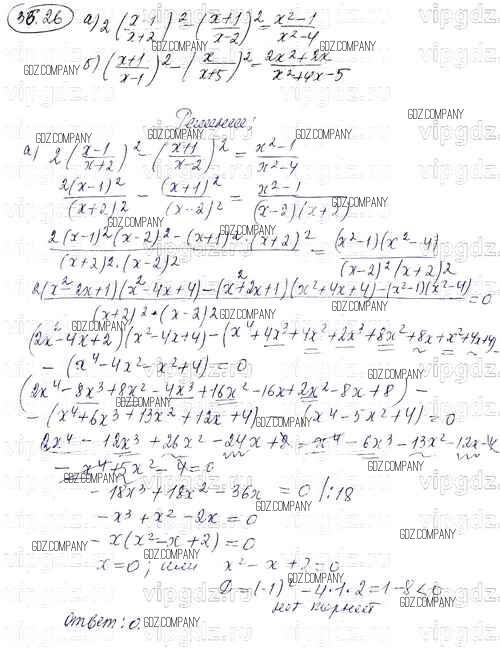 35.26 а) 2((x-1)/(x+2))² - ((x+1)/(x-2))² = (x²-1)/(x²-4)
б) ((x+1)/(x-1))² - (x/(x+5))² = (2x²+8x)/(x²+4x-5)
Решение:
а) 2((x-1)/(x+2))² - ((x+1)/(x-2))² = (x²-1)/(x²-4)
2(x-1)²/(x+2)² - (x+1)²/(x-2)² = (x²-1)/((x-2)(x+2))
(2(x-1)²(x-2)² - (x+1)²·(x+2)²)/((x+2)²·(x-2)²) = (x²-1)(x²-4)/((x-2)²(x+2)²)
(2(x²-2x+1)(x²-4x+4)-(x²+2x+1)(x²+4x+4)-(x²-1)(x²-4))/((x+2)²·(x-2)²) = 0
(2x²-4x+2)(x²-4x+4)-(x⁴+4x³+4x²+2x³+8x²+8x+x²+4x+4)
- (x⁴-4x²-x²+4) = 0
(2x⁴-8x³+8x²-4x³+16x²-16x+2x²-8x+8) -
- (x⁴+6x³+13x²+12x+4) - (x⁴-5x²+4) = 0
2x⁴-12x³+26x²-24x+8-x⁴-6x³-13x²-12x-4
- x⁴+5x²-4=0
-18x³+18x²-36x = 0 /:18
-x³+x²-2x=0
-x(x²-x+2)=0
x=0; или x²-x+2=0
D=(-1)²-4·1·2=1-8<0
нет корней
Ответ: 0.
GDZ.COMPANY
vipgdz.ru